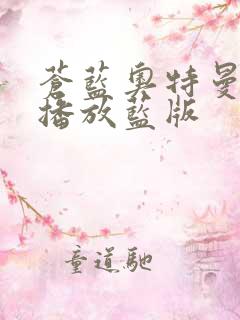 蒼藍奧特曼
播放藍版
童道馳